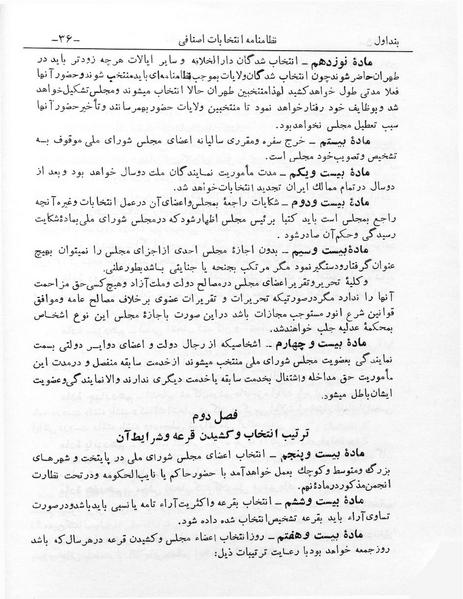 بنداول نظامنامه انتخابات اصنافی -۳۶-
مادهٔ نوزدهم – انتخاب شدگان دارالخلافه و سایر ایالات هرچه زودتر باید در
طهران حاضر شوند چون انتخاب شدگان ولایات بموجب نظامنامه‌ای باید منتخب شوند و حضور آنها
فعلا مدتی طول خواهد کشید لهذا منتخبین طهران حالا انتخاب میشوند و مجلس تشکیل خواهد
شد و بوظایف خود رفتار خواهد نمود تا منتخبین ولایات حضور بهمرسانند و تأخیر حضور آنها
سبب تعطیل مجلس نخواهد بود.
مادهٔ بیستم – خرج سفره و مقرری سالیانه اعضای مجلس شورای ملی موقوف به
تشخیص و تصویب خود مجلس است.
مادهٔ بیست و یکم – مدت مأموریت نمایندگان ملت دوسال خواهد بود و بعد از
دوسال در تمام ممالک ایران تجدید انتخابات خواهد شد.
مادهٔ بیست و دوم – شکایات راجعهٔ بمجلس و اعضای آن در عمل انتخابات و غیره آنچه
راجع بمجلس است باید کتبا برئیس مجلس اظهار شود که در مجلس شورای ملی بمادهٔ شکایت
رسیدگی و حکم آن صادر شود.
مادهٔ بیست و سیم – بدون اجازهٔ مجلس احدی از اجزای مجلس را نمیتوان بهیچ
عنوان گرفتار و دستگیر نمود مگر مرتکب بجنحه یا جنایتی باشد بطور علنی.
و کلیهٔ تحریر و تقریر اعضای مجلس در مصالح دولت و ملت آزاد و هیچ کسی حق مزاحمت
آنها را ندارد مگر در صورتیکه تحریرات و تقریرات عضوی برخلاف مصالح عامه و موافق
قوانین شرع انور مستوجب مجازات باشد در این صورت با اجازهٔ مجلس این نوع اشخاص
بمحکمهٔ عدلیه جلب خواهند شد.
مادهٔ بیست و چهارم – اشخاصیکه از رجال دولت و اعضای دوایر دولتی بسمت
نمایندگی بعضویت مجلس شورای ملی منتخب میشوند از خدمت سابقه منفصل و در مدت این
مأموریت حق مداخله و اشتغال بخدمت سابقه یا خدمت دیگری ندارند والا نمایندگی و عضویت
ایشان باطل میشود.
فصل دوم
ترتیب انتخاب و کشیدن قرعه و شرایط آن
مادهٔ بیست و پنجم – انتخاب اعضای مجلس شورای ملی در پایتخت و شهرهای
بزرگ و متوسط و کوچک بعمل خواهد آمد با حضور حاکم یا نایب الحکومه و در تحت نظارت
انجمن مذکور در مادهٔ نهم.
مادهٔ بیست و ششم – انتخاب بقرعه و اکثریت آراء تامه یا نسبی باید باشد و در صورت
تساوی آراء باید بقرعه تشخیص انتخاب شده داده شود.
مادهٔ بیست و هفتم – روز انتخاب اعضاء مجلس و کشیدن قرعه در هر سال که باشد
روز جمعه خواهد بود با رعایت ترتیبات ذیل: